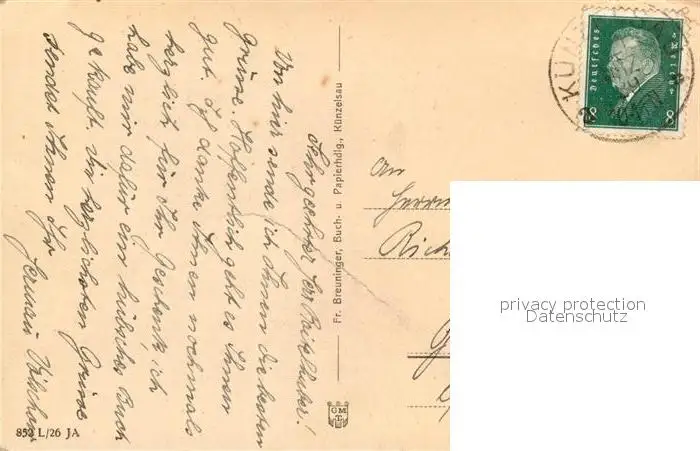 Sehr geehrter Herr
Von mir sende ich Ihnen die besten
Grüsse. Hoffentlich geht es Ihnen
gut. Ich danke Ihnen nochmals
herzlich für Ihr Geschenk, ich
habe mir dafür ein hübsches Buch
gekauft. Die herzlichsten Grüsse
sendet Ihnen Ihr
Hermann
Fr. Breuninger, Buch- u. Papierhdlg., Künzelsau
852 L/26 JA
GM
KÜN
Deutsches
Reich
8 8
An
Herrn
Rich
privacy protection
Datenschutz